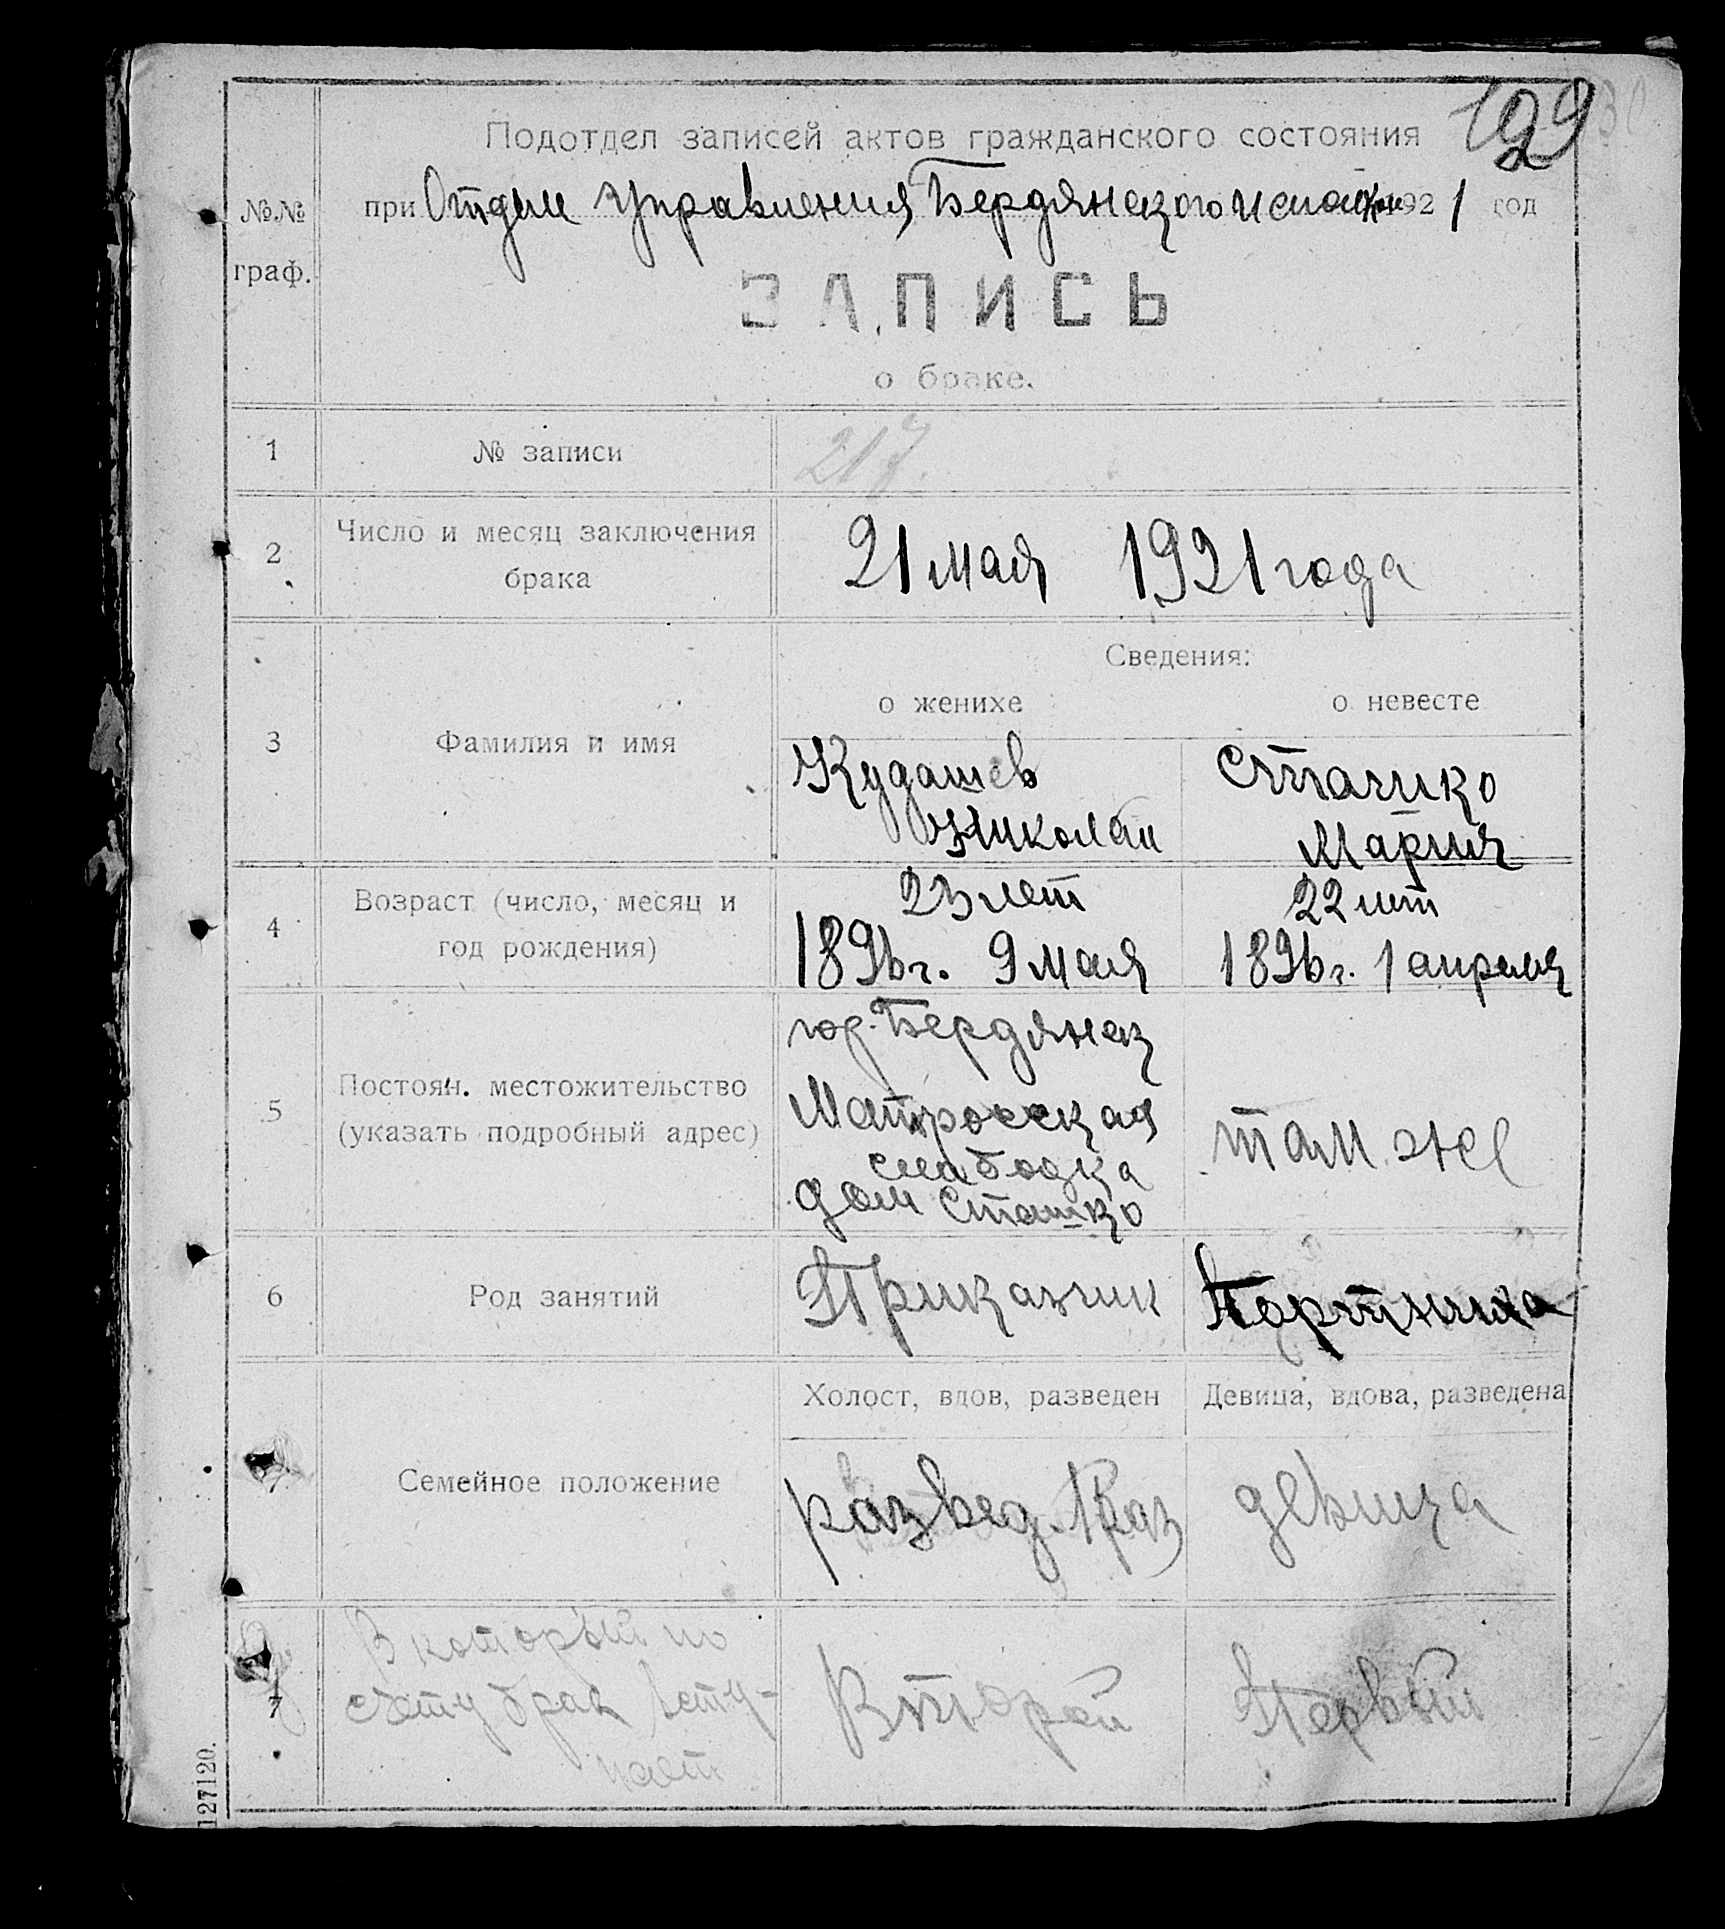 129
Подотдел записей актов гражданского состояния
№№ граф.
при Отделе Управления Бердянского 1921 год
ЗАПИСЬ
о браке.
1 № записи 217.
2 Число и месяц заключения брака 21 мая 1921 года
Сведения:
о женихе о невесте
3 Фамилия и имя
Кудашев
Николай
Сташко
Мария
4 Возраст (число, месяц и год рождения)
23 лет
1896 г. 9 мая
22 лет
1896 г. 1 апреля
5 Постоян. местожительство (указать подробный адрес)
гор. Бердянск
Матросская
слабодка
дом Сташко
там же
6 Род занятий Приказчик Портниха
Холост, вдов, разведен Девица, вдова, разведена
7 Семейное положение развед. 1 раз девица
7 В который по
счету брак всту-
пает
Второй Первый
127120.